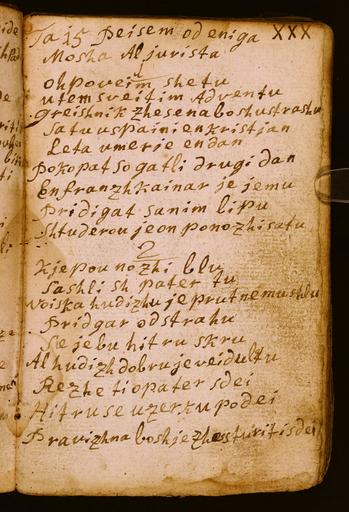 Ta 15 Peisem od eniga XXX
Mosha Al jurista
ohpoveim shetu
utem sveitim Adventu
Greishnik zhesena boshustrashu
Satu uspainien kristjan
Leta umerje en dan
Pokopat so gatli drugi dan
En franzhkainar je jemu
Pridigat sunim lipu
Shtuderou je on ponozhi satu
2
Kje pou nozhi blu
Sashli sh pater tu
voiska hudizhu je prut nemu shlu
Pridgar od strahu
Se je bu hitru skru
Al hudizh dobru je veidu ltu
Rezhe ti o pater sdei
Hitru se uzerku podei
Pravizhna boshje zhesturiti sdei